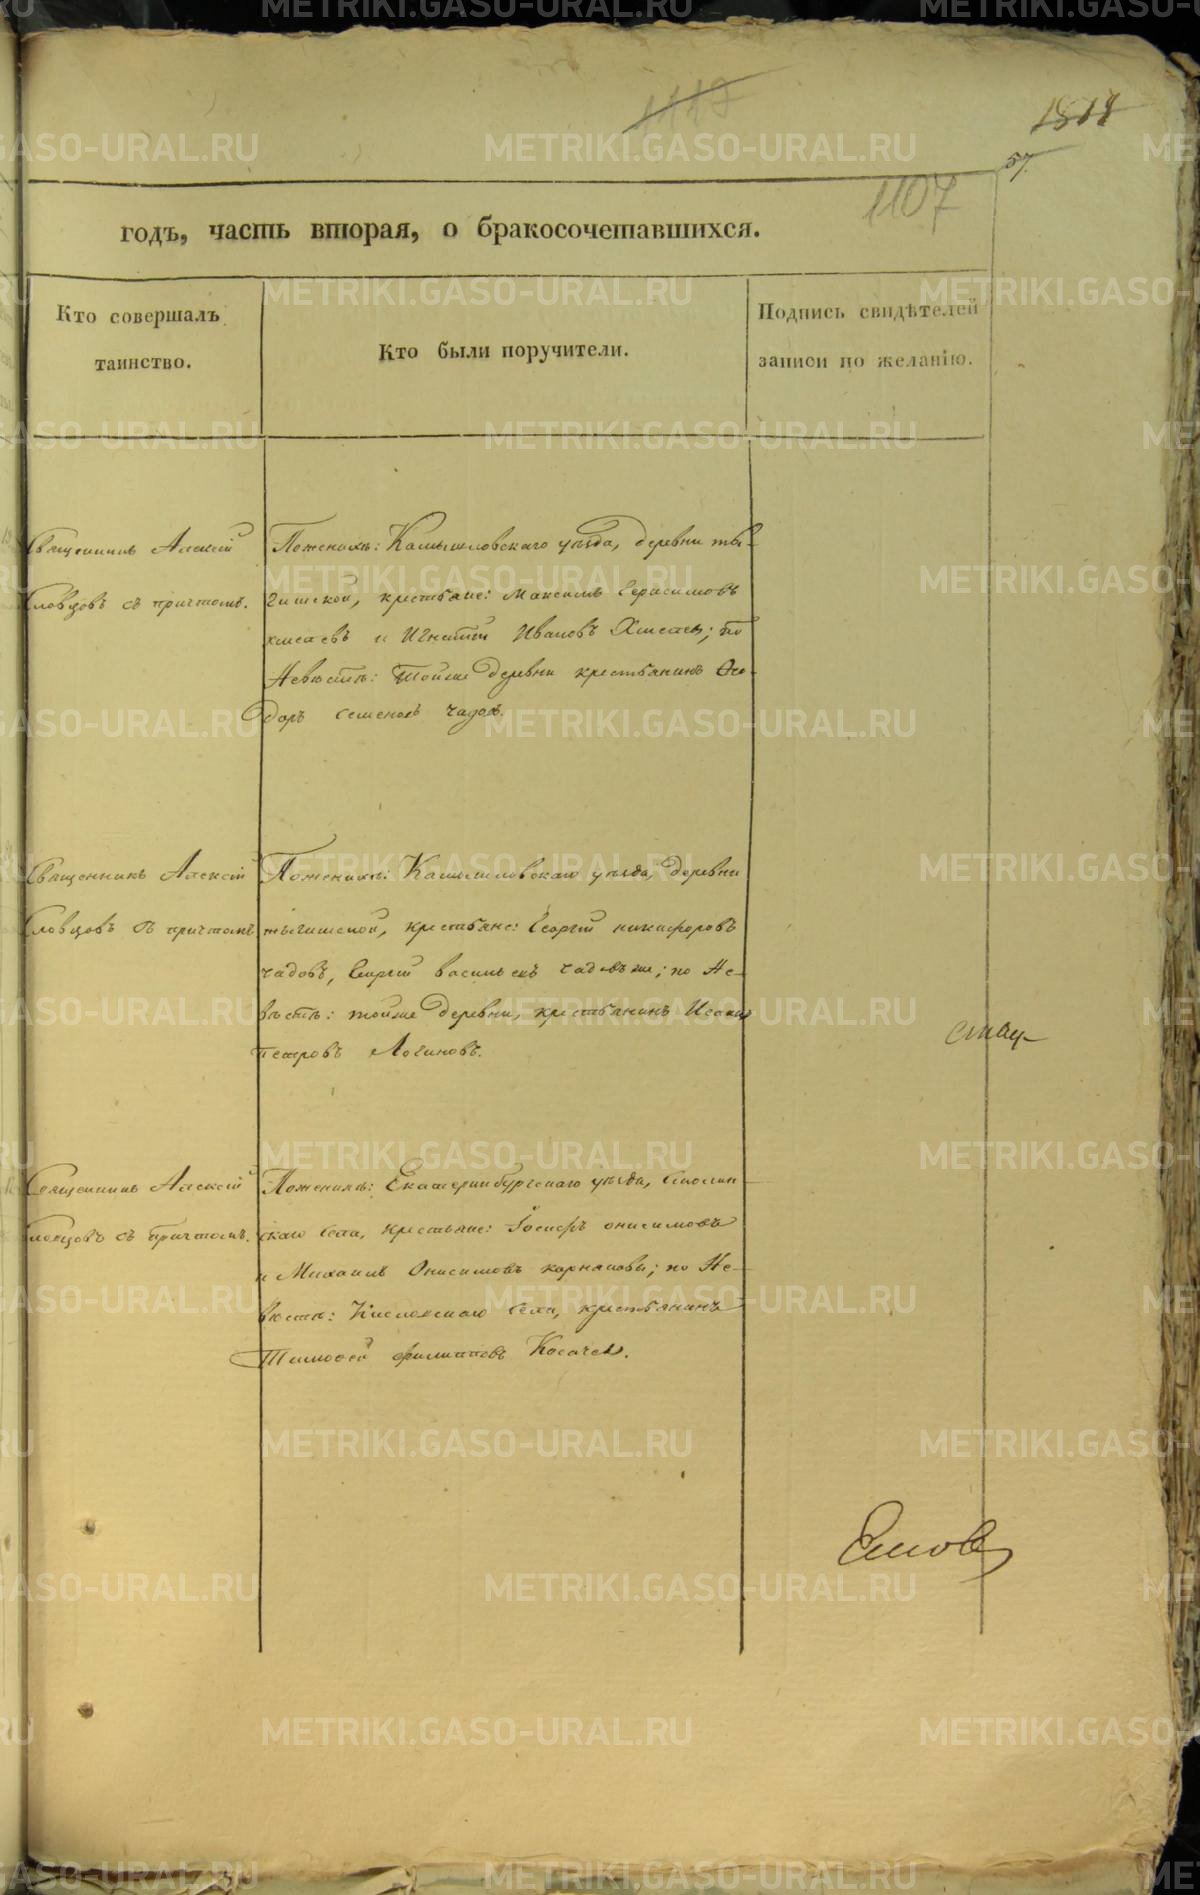 1117
1818
57.
1107
годъ, часть вторая, о бракосочетавшихся.
Кто совершалъ
таинство.
Кто были поручители.
Подпись свидѣтелей
записи по желанію.
Священникъ Алексій
Словцовъ съ причтомъ.
По женихѣ: Камышловскаго уѣзда, деревни ты-
гишской, крестьяне: Максимъ Герасимовъ
и Игнатій Ивановъ; по
Невѣстѣ: тойже деревни крестьянинъ Ѳео-
доръ Семеновъ Чадовъ.
Священникъ Алексій
Словцовъ съ причтомъ
По женихѣ: Камышловскаго уѣзда, деревни
тыгишской, крестьяне: Георгій никифоровъ
чадовъ, Георгій васильевъ чадовъ же; по Не-
вѣстѣ: тойже деревни, крестьянинъ Исакій
петровъ Логиновъ.
Священникъ Алексій
Словцовъ съ причтомъ.
По женихѣ: Екатеринбургскаго уѣзда,
скаго села, крестьяне: Іосифъ онисимовъ
и Михаилъ Онисимовъ карнаховы; по Не-
вѣстѣ: Кисловскаго села, крестьянинъ
Тимофей филипповъ Косачев.
METRIKI.GASO-URAL.RU